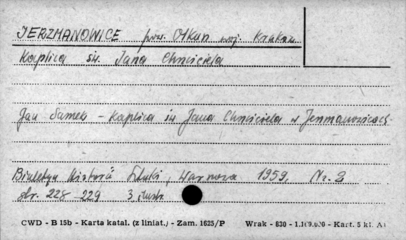 JERZMANOWICE pow. Olkusz woj. Kraków
Kaplica św. Jana Chrzciciela
Jan Samek - Kaplica św Jana Chrzciciela w Jerzmanowicach
Biuletyn Historii Sztuki, Warszawa 1959, Nr. 2
str. 228 229 3 ilustr.
CWD - B 15b - Karta katal. (z liniat.) - Zam. 1623/P Wrak - 830 - Kart. 5 kl. A1